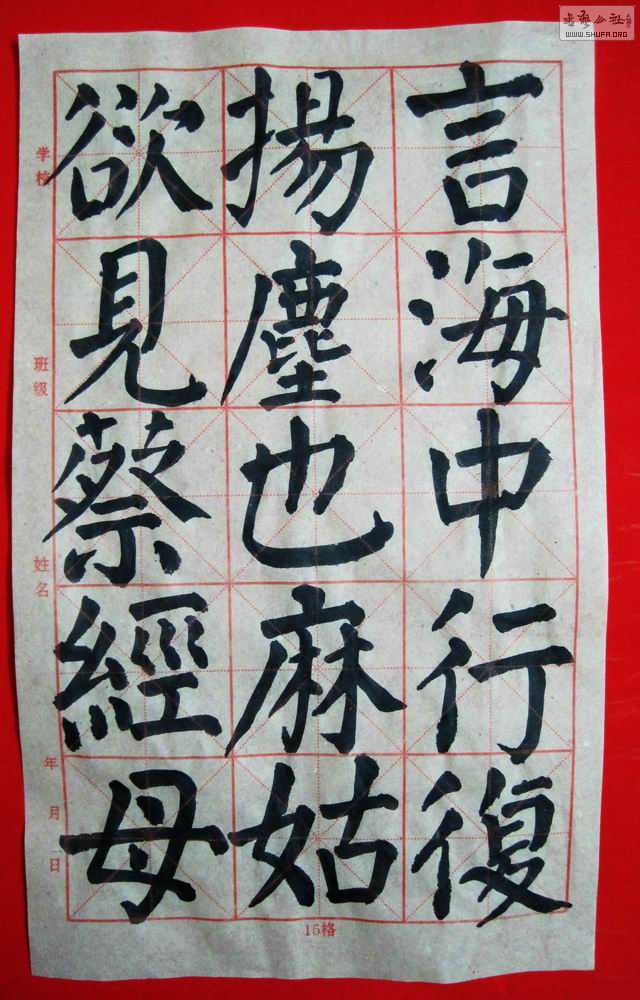 言海中行復
揚塵也麻姑
欲見蔡經母
学校
班级
姓名
年月日
15格
書藝公社
WWW.SHUFA.ORG